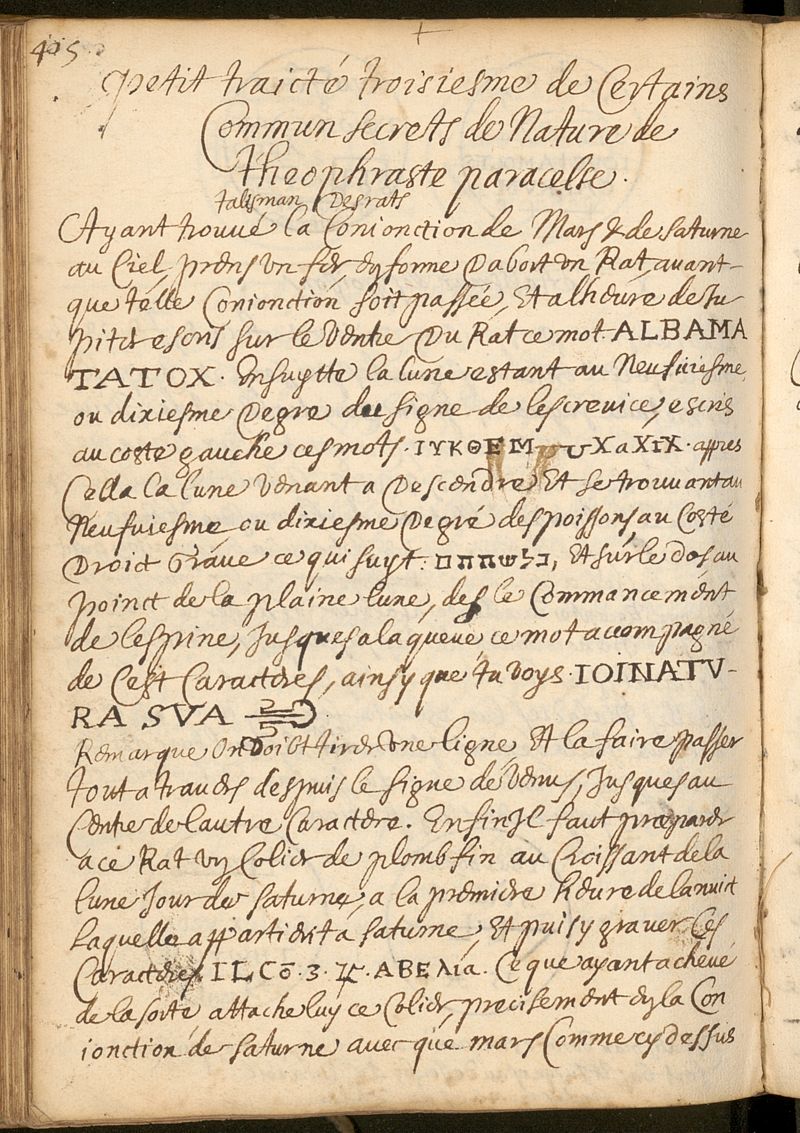 415
petit traicté troisiesme de Certains
Commun secrets de Nature de
theophraste paracelse.
talisman Des rats
Ayant trouué la Conionction de Mars & de saturne
au Ciel, prens vn fer, ey forme Dabort vn Rat auant-
que telle Conionction soit passée, Et alheure de Ju-
piter escris sur le Ventre Du Rat ce mot. ALBAMA
TATOX. Ensuytte la lune estant au Neufuiesme
ou dixiesme Degre du signe de lescreuice, escris
au costé gauche ces mots. IYKΘEM XaXIX. appres
Cella la lune venant a Descendre Et se trouuant au
Neufuiesme ou dixiesme Degré des poissons au Costé
Droict Graue ce qui suyt: בלשההם, Et sur le dos au
poinct de la plaine lune, des le Commancement
de lespine, Jusques a la queue ce mot accompagné
de Cest Caracteres, ainsy que tu voys. IOINATV-
RA SVA
Remarque On Doibt tirer vne ligne Et la faire passer
tout a trauers despuis le signe de Venus, Jusques au
Centre de lautre Caractere. Enfin Jl faut præparer
a ce Rat vn Colier de plomb fin au Croissant de la
lune Jour de saturne, a la premiere heure de la nuict
Laquelle appartient a saturne, Et puis y grauer Ces
Caracteres. ILCō. 3. ABEλia. Ce que ayant acheué
de la sorte attache luy ce Colier, precisement ey la Con
ionction de saturne auec que mars Comme cy dessus